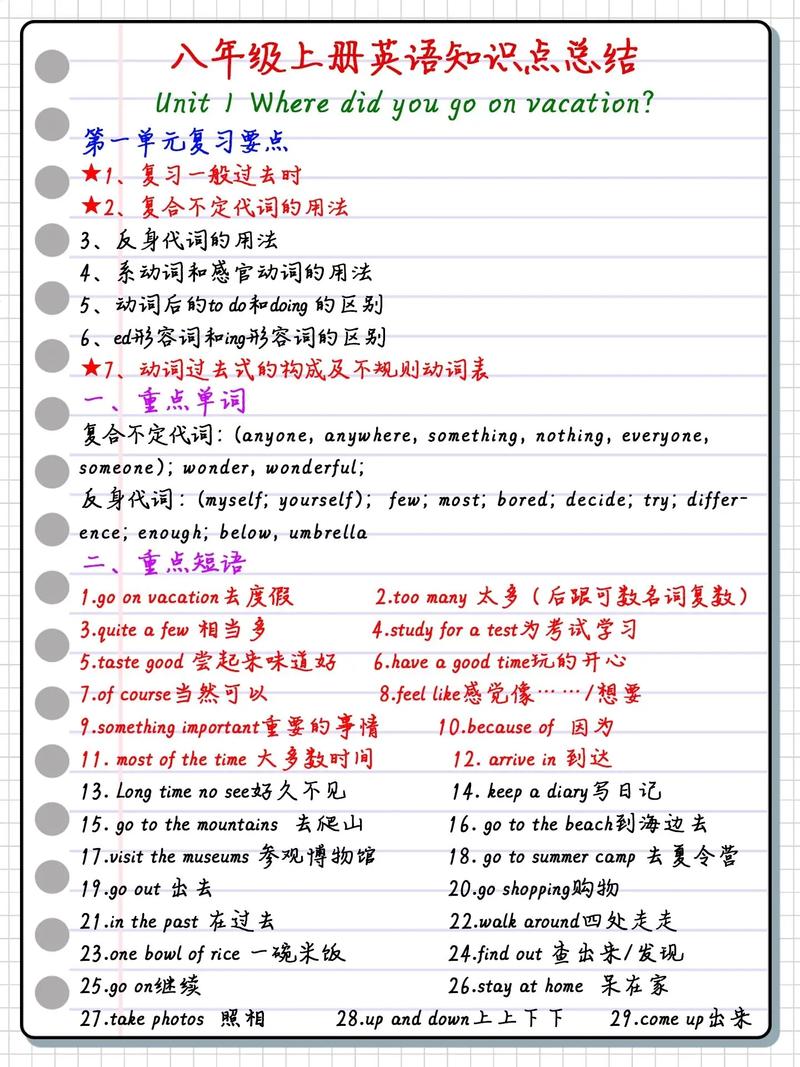 八年级上册英语知识点总结
Unit 1 Where did you go on vacation?
第一单元复习要点
★1、复习一般过去时
★2、复合不定代词的用法
3、反身代词的用法
4、系动词和感官动词的用法
5、动词后的to do和doing 的区别
6、ed形容词和ing形容词的区别
★7、动词过去式的构成及不规则动词表
一、重点单词
复合不定代词：(anyone, anywhere, something, nothing, everyone,
someone); wonder, wonderful;
反身代词：(myself; yourself); few; most; bored; decide; try; differ-
ence; enough; below, umbrella
二、重点短语
1.go on vacation去度假 2.too many 太多（后跟可数名词复数）
3.quite a few 相当多 4.study for a test为考试学习
5.taste good 尝起来味道好 6.have a good time玩的开心
7.of course当然可以 8.feel like感觉像……/想要
9.something important重要的事情 10.because of 因为
11. most of the time 大多数时间 12. arrive in 到达
13. Long time no see好久不见 14. keep a diary写日记
15. go to the mountains 去爬山 16. go to the beach到海边去
17.visit the museums 参观博物馆 18. go to summer camp 去夏令营
19.go out 出去 20.go shopping购物
21.in the past 在过去 22.walk around四处走走
23.one bowl of rice 一碗米饭 24.find out 查出来/发现
25.go on继续 26.stay at home 呆在家
27.take photos 照相 28.up and down上上下下 29.come up出来